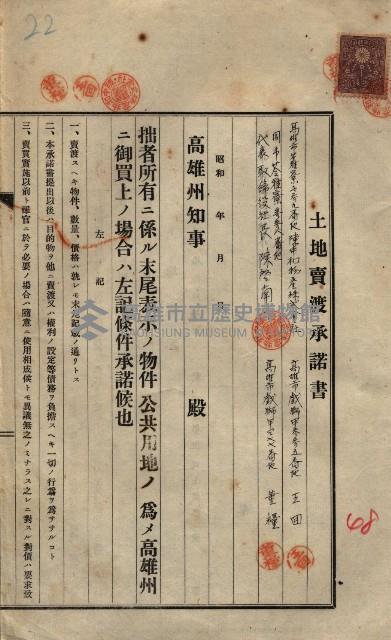 22
土地賣渡承諾書
高雄市戲獅甲
王田
高雄市戲獅甲
葉糧
高雄市苓雅寮
陳中和物產株式會社
代表取締役社長 陳啓南
昭和 年 月 日
高雄州知事 殿
拙者所有ニ係ル末尾表示ノ物件公共用地ノ爲メ高雄州
ニ御買上ノ場合ハ左記條件承諾候也
左記
一、賣渡スヘキ物件、數量、價格ハ孰レモ末尾記載ノ通リトス
二、本承諾書提出以後ハ目的物ヲ他ニ賣渡又ハ權利ノ設定等債務ヲ負擔スヘキ一切ノ行爲ヲ爲ササルコト
三、賣買實施以前ト雖官ニ於テ必要ノ場合ハ隨意ニ使用相成候トモ異議無之ノミナラス之レニ對スル對價ハ要求致
68
高雄市立歷史博物館
KAOHSIUNG MUSEUM